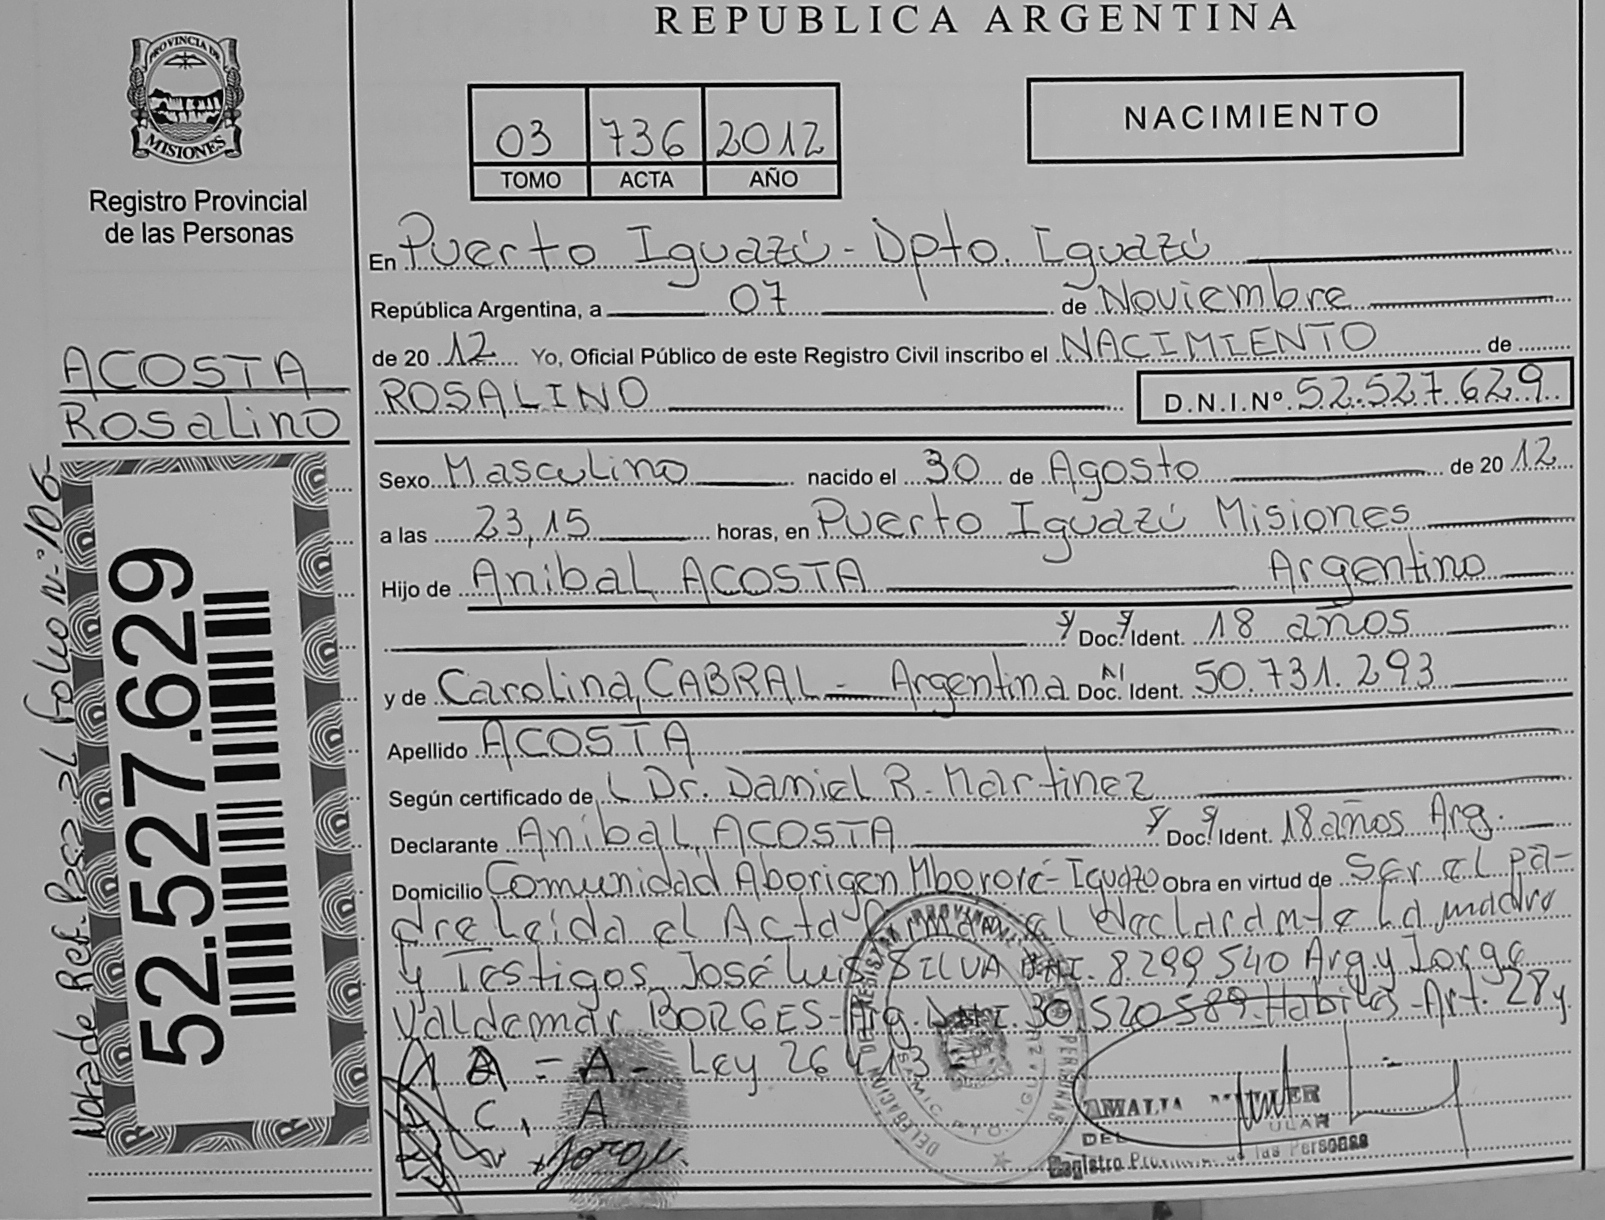 REPUBLICA ARGENTINA
PROVINCIA DE
MISIONES
Registro Provincial
de las Personas
03 736 2012
TOMO ACTA AÑO
NACIMIENTO
En Puerto Iguazú - Dpto. Iguazú
República Argentina, a 07 de Noviembre
de 20 12 Yo, Oficial Público de este Registro Civil inscribo el NACIMIENTO de
ROSALINO D.N.I.Nº 52.527.629
ACOSTA
Rosalino
Sexo Masculino nacido el 30 de Agosto de 20 12
a las 23,15 horas, en Puerto Iguazú Misiones
Hijo de Anibal ACOSTA Argentino
Doc. Ident. 18 años
y de Carolina CABRAL - Argentina Doc. Ident. 50.731.293
Apellido ACOSTA
Según certificado de Dr. Daniel R. Martinez
Declarante Anibal ACOSTA Doc. Ident. 18 años Arg.
Domicilio Comunidad Aborigen Mbororé - Iguazo Obra en virtud de Ser el pa-
dre Leida el Acta el declarante La madre
y Testigos José Luis SILVA DNI. 8.299.540 Arg. y Jorge
Valdemar BORGES - Arg. DNI. 30.520.589 Habiles - Art. 28 y
A - A - Ley 26.413 -
C, A
Jorge
AMALIA
DEL ULAR
Registro de las Personas
DELEGACION DEL REGISTRO PROVINCIAL PERSONAS
52.527.629
Nota de Ref. Folio Nº 106